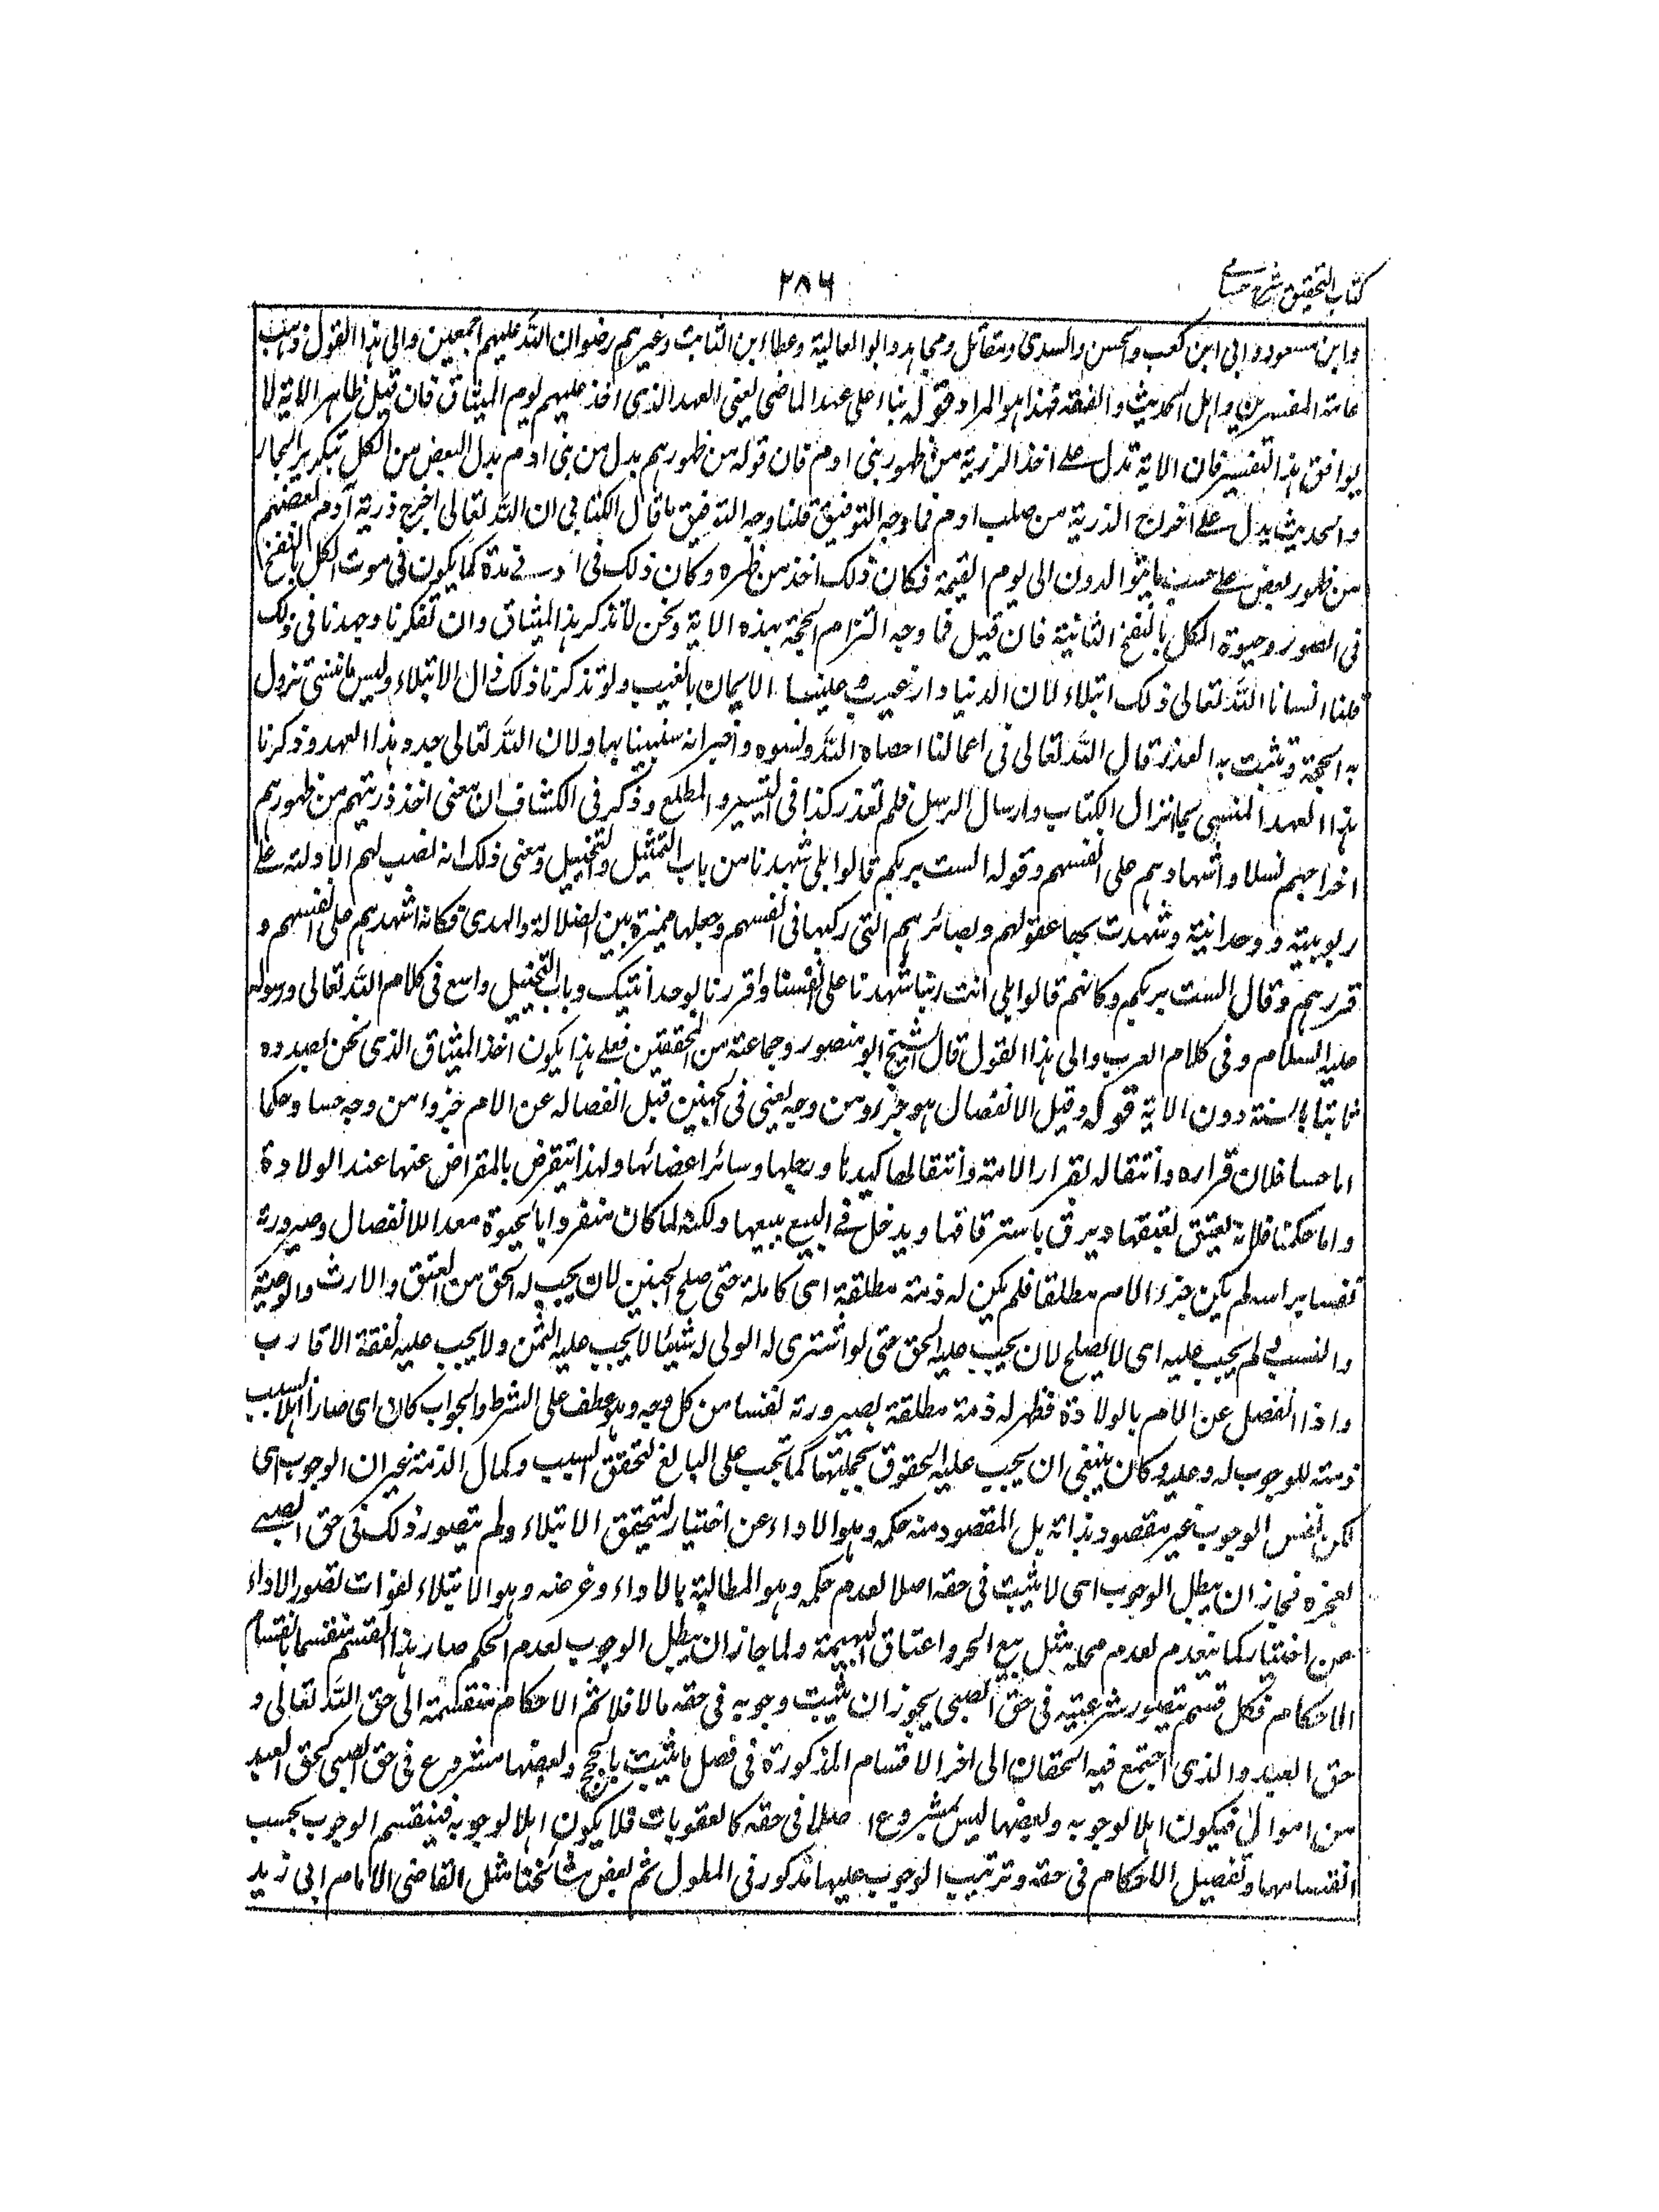 كتاب التحقيق شرح حسامي
٢٨٦
وابن مسعود وابي ابن كعب والحسن والسدي ومقاتل ومجاهد وابو العالية وعطاء ابن الثابت وغيرهم رضوان الله عليهم اجمعين والى هذا القول ذهب
عامة المفسرين واهل الحديث والفقه فهذا هو المراد قوله بناء على عهد الماضى يعنى العهد الذى اخذ عليهم يوم الميثاق فان قيل ظاهر الاية لا
يوافق هذا التفسير فان الاية تدل على اخذ الذرية من ظهور بنى ادم فان قوله من ظهورهم بدل من بنى ادم بدل البعض من الكل بتكرير الجار
والحديث يدل على اخراج الذرية من صلب ادم فما وجه التوفيق قلنا وجه التوفيق ما قال الكتابى ان الله تعالى اخرج ذرية آدم بعضهم
من ظهور بعض على حسب ما يتوالدون الى يوم القيمة فكان ذلك اخذ من ظهره وكان ذلك فى ادنى مدة كما يكون فى موت الكل بالنفخ
فى الصور وحيوة الكل بالنفخ الثانية فان قيل فما وجه التزام الحجة بهذه الاية ونحن لا نذكر هذا الميثاق وان تفكرنا وجهدنا فى ذلك
قلنا انسانا الله تعالى ذلك ابتلاء لان الدنيا دار غيب وعلينا الايمان بالغيب ولو تذكرنا ذلك زال الابتلاء وليس ما ننسى تزول
به الحجة وتثبت به العذر قال الله تعالى فى اعمالنا احصاه الله ونسوه واخبر انه سينبينا بها ولان الله تعالى جدد هذا العهد وذكرنا
هذا العهد المنسى بانزال الكتاب وارسال الرسل فلم نعذر كذا فى التيسير والمطلع وذكر فى الكشاف ان معنى اخذ ذريتهم من ظهورهم
اخراجهم نسلا واشهادهم على انفسهم وقوله الست بربكم قالوا بلى شهدنا من باب التمثيل والتخييل ومعنى ذلك انه نصب لهم الادلة على
ربوبيته ووحدانيته وشهدت بها عقولهم وبصائرهم التى ركبها فى انفسهم وجعلها مميزة بين الضلالة والهدى فكانه اشهدهم على انفسهم و
قررهم وقال الست بربكم وكانهم قالوا بلى انت ربنا شهدنا على انفسنا واقررنا بوحدانيتك وباب التخييل واسع فى كلام الله تعالى ورسوله
عليه السلام وفى كلام العرب والى هذا القول قال الشيخ ابو منصور وجماعة من المحققين فعلى هذا يكون اخذ الميثاق الذى نحن بصدده
ثابتا بالسنة دون الاية قوله وقبل الانفصال هو جزء من وجه يعنى فى الجنين قبل انفصاله عن الام جزؤ من وجه حسا وحكما
اما حسا فلان قراره وانتقاله بقرار الامة وانتقالها كيدها ورجلها وسائر اعضائها ولهذا يقرض بالمقراض عنها عند الولادة
واما حكما فلانه يعتق بعتقها ويرق باسترقاقها ويدخل فى البيع ببيعها ولكنه لما كان منفردا بالحيوة معدا للانفصال وصيرورته
نفسا براسه لم يكن جزء الام مطلقا فلم يكن له ذمة مطلقة اى كاملة حتى صلح الجنين لان يجب له الحق من العتق والارث والوصية
والنسب ولم يجب عليه اى لا يصلح لان يجب عليه الحق حتى لو اشترى له الولى له شيئا لا يجب عليه الثمن ولا يجب عليه نفقة الاقارب
واذا انفصل عن الام بالولادة فظهر له ذمة مطلقة بصيرورته نفسا من كل وجه وهو عطف على الشرط والجواب كان اى صار اهلا بسبب
ذمته للوجوب له وعليه وكان ينبغى ان يجب عليه الحقوق بجملتها كما تجب على البالغ لتحقق السبب وكمال الذمة غير ان الوجوب اى
لكن نفس الوجوب غير مقصود بذاته بل المقصود منه حكمه وهو الاداء عن اختيار لتحقق الابتلاء ولم يتصور ذلك فى حق الصبى
لعجزه فجاز ان يبطل الوجوب اى لا يثبت فى حقه اصلا لعدم حكمه وهو المطالبة بالاداء وغرضه وهو الابتلاء لفوات تصور الاداء
عن اختيار كما ينعدم لعدم محله مثل بيع الحر واعتاق البهيمة ولما جاز ان يبطل الوجوب لعدم الحكم صار هذا القسم منقسما بانقسام
الاحكام فكل قسم يتصور شرعيته فى حق الصبى يجوز ان يثبت وجوبه فى حقه ما لا فلا ثم الاحكام منقسمة الى حق الله تعالى و
حق العبد والذى اجتمع فيه الحقان الى اخر الاقسام المذكورة فى فصل ما يثبت بالحجج وبعضها مشروع فى حق الصبى كحق العبد
من اموال فيكون اهلا لوجوبه وبعضها ليس بمشروع اصلا فى حقه كالعقوبات فلا يكون اهلا لوجوبه فينقسم الوجوب بحسب
انقسامها وتفصيل الاحكام فى حقه وترتيب الوجوب عليها مذكور فى المطول ثم بعض مشائخنا مثل القاضى الامام ابى زيد